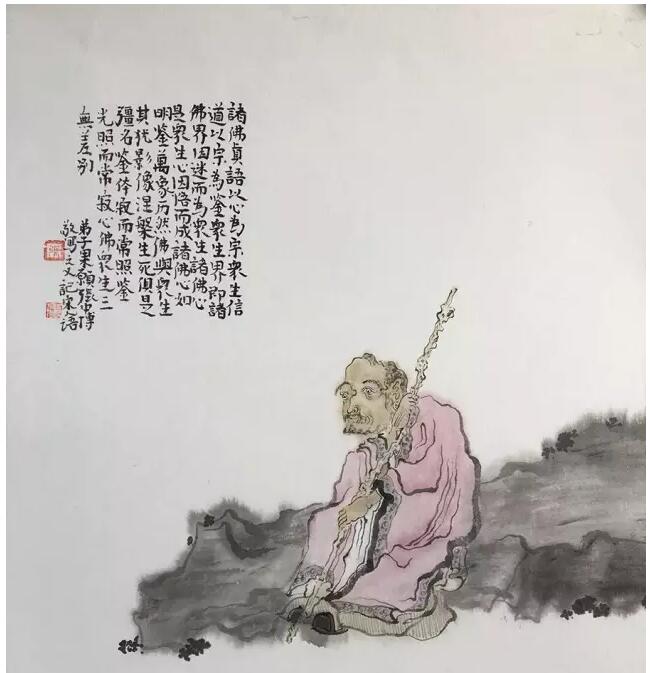 諸佛真語以心為宗衆生信
道以宗為鉴衆生界即諸
佛界因迷而為衆生諸佛心
是衆生心因悟而成諸佛心如
明鉴萬象历然佛與衆生
其犹影像涅槃生死俱是
彊名鉴体寂而常照鉴
光照而常寂心佛衆生三
無差别
弟子果願張博
敬寫又記